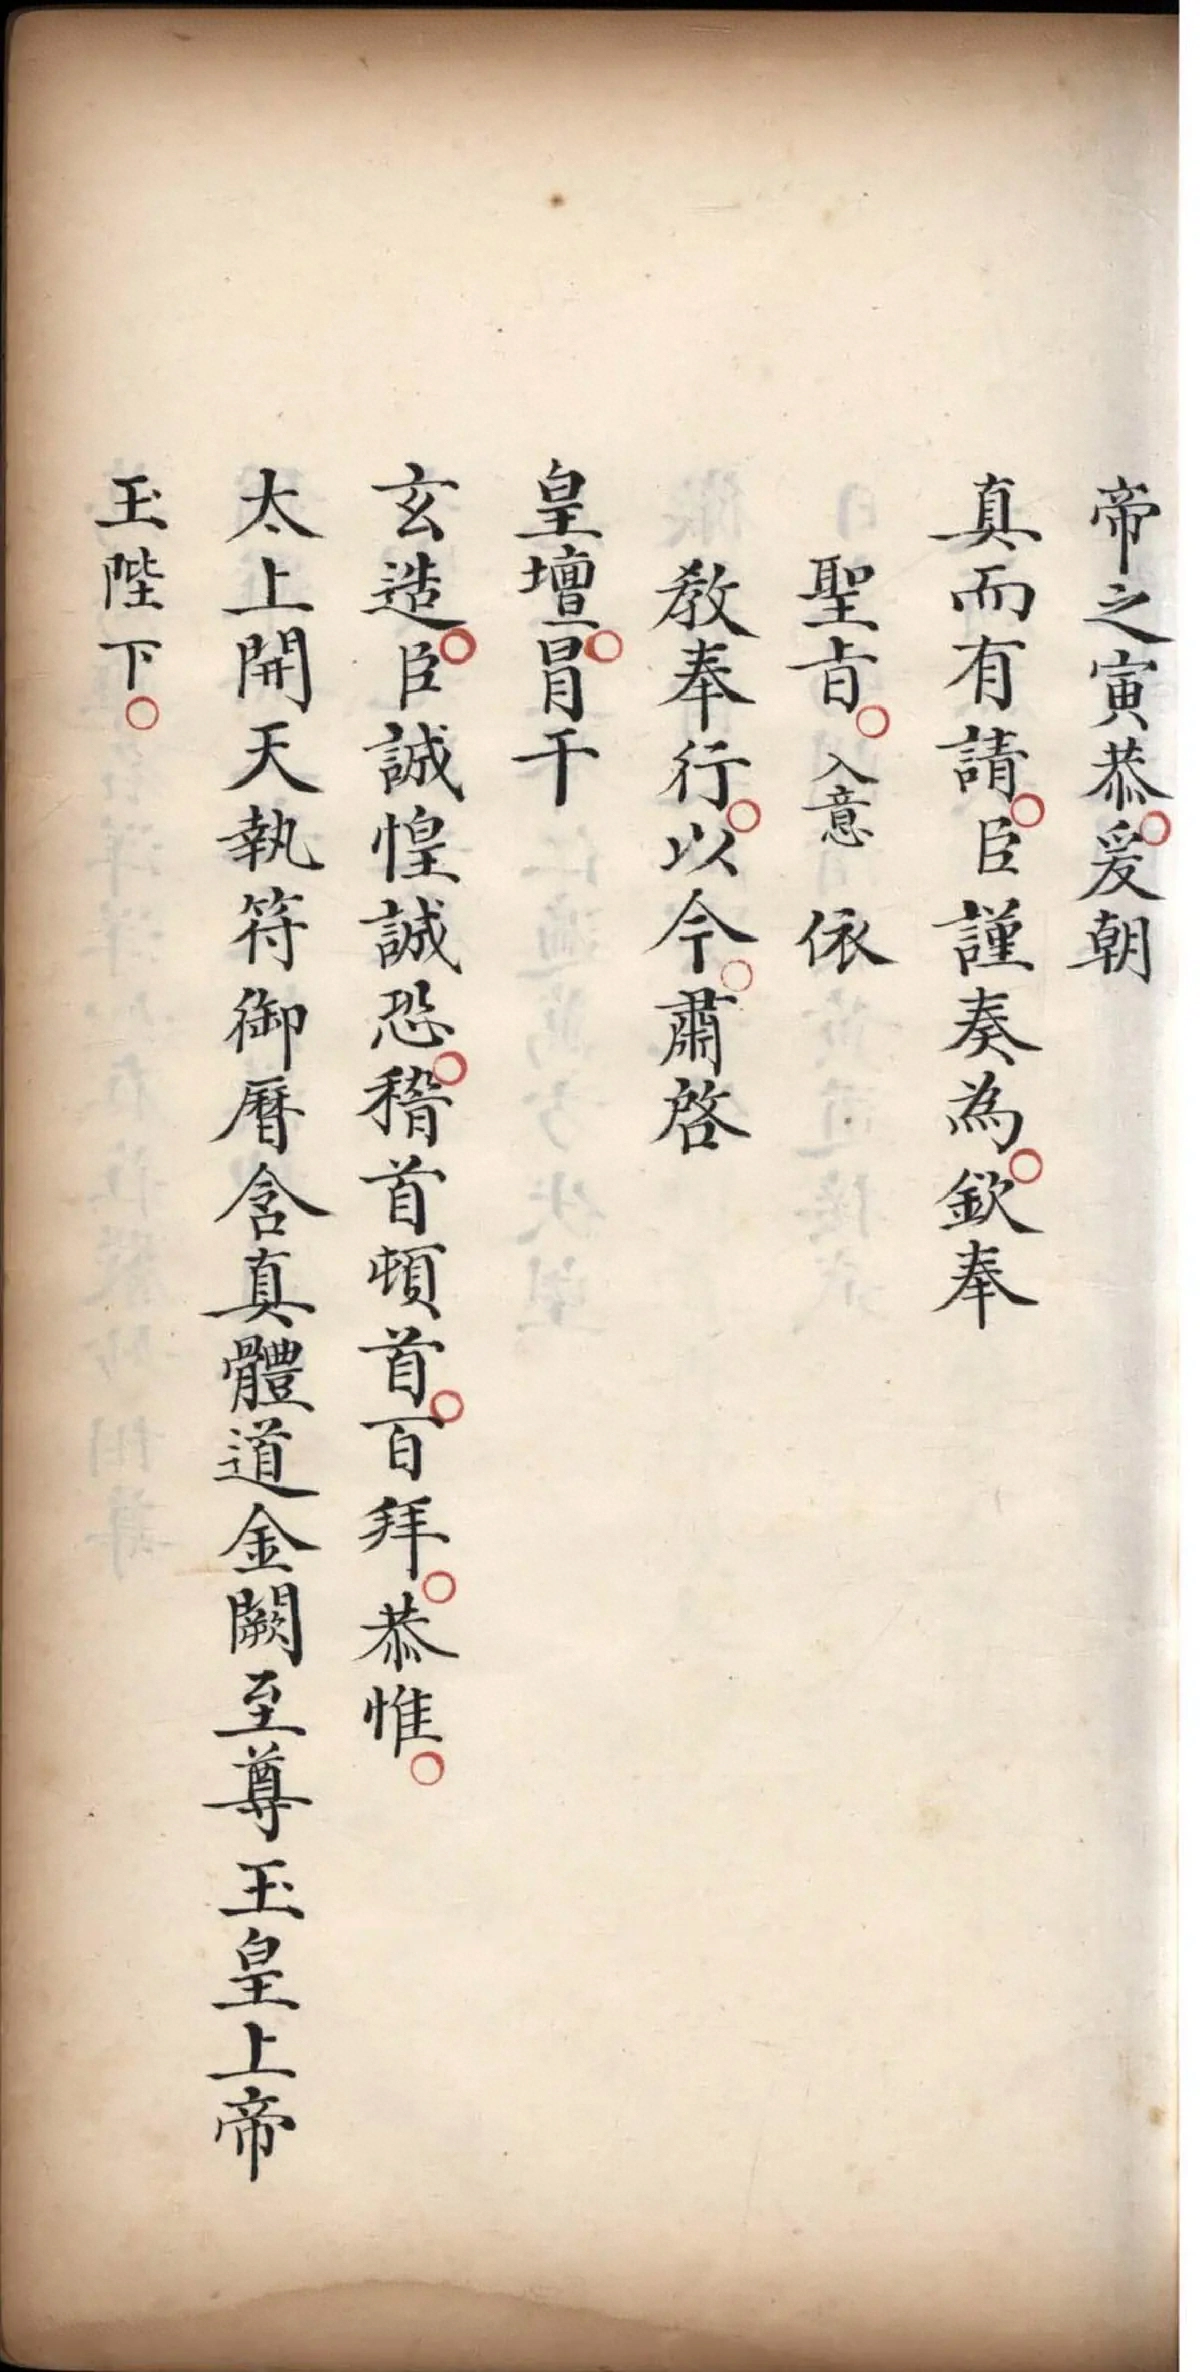 帝之寅恭○爰朝
真而有請○臣謹奏為○欽奉
聖㫖○入意 依
教奉行○以今○肅啓
皇壇○冒干
玄造○臣誠惶誠恐○稽首頓首○百拜○恭惟○
太上開天執符御曆含真體道金闕至尊玉皇上帝
玉陛下○